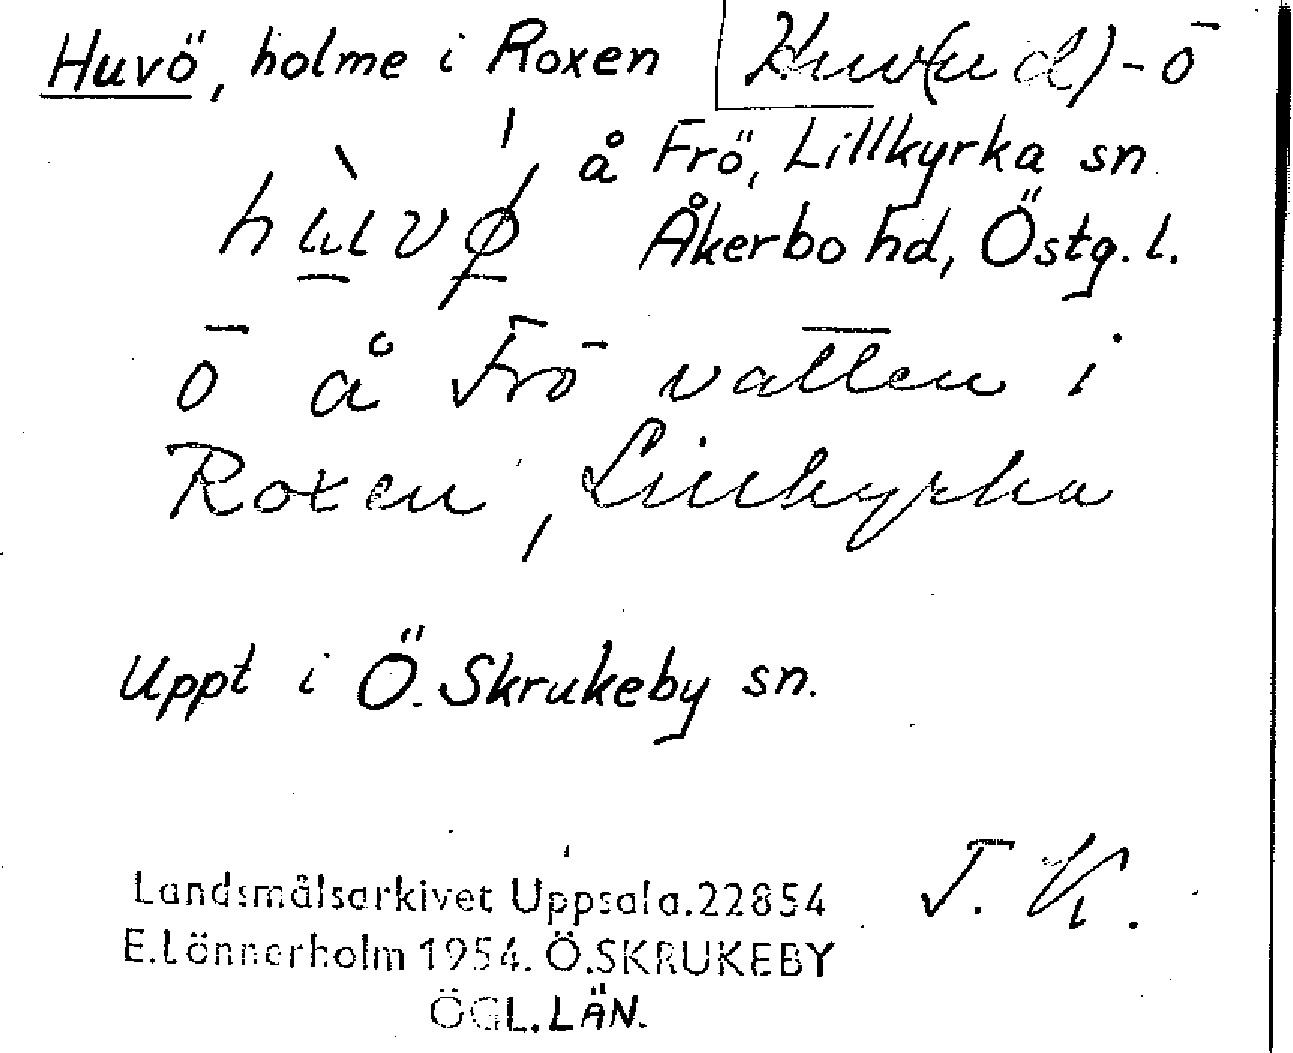 Huvö, holme i Roxen
Huv(ud)-ö
å Frö, Lillkyrka sn
Åkerbo hd, Östg. l.
ö å Frö vatten i
Roxen, Lillkyrka
Uppt i Ö. Skrukeby sn.
Landsmålsarkivet Uppsala. 22854
E. Lönnerholm 1954. Ö. SKRUKEBY
ÖGL. LÄN.